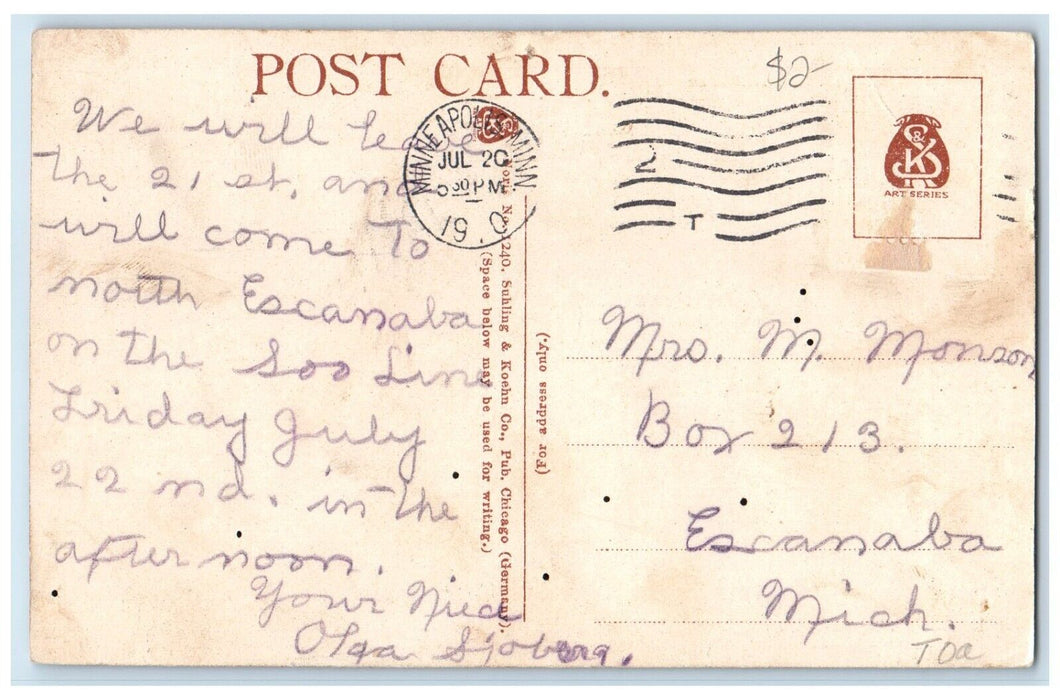 POST CARD.
$2-
We will leave
the 21 st. and
will come to
north Escanaba
on the Soo Line
Friday July
22 nd. in the
after noon.
Your Niece
Olga Sjoberg.
MINNEAPOLIS, MINN
JUL 20
5 30 PM
19 0
2
T
S & K
ART SERIES
240. Suhling & Koehn Co., Pub. Chicago (Germany).
(Space below may be used for writing.)
(For address only.)
Mrs. M. Monson
Box 213.
Escanaba
Mich.